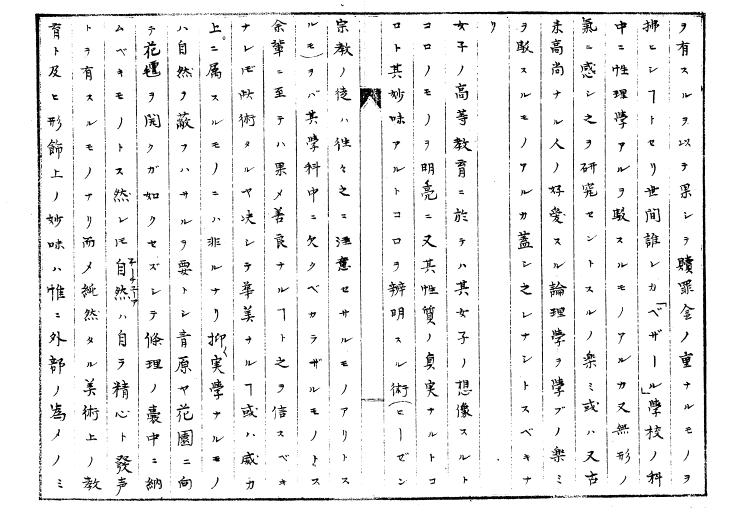 ヲ有スルヲ以テ果シテ贖罪金ノ重ナルモノヲ
拂ヒシヿトセリ世間誰レカ「ベザール」學校ノ科
中ニ性理學アルヲ駁スルモノアルカ又無形ノ
氣ニ感シ之ヲ研究セントスルノ楽ミ或ハ又古
来高尚ナル人ノ好愛スル論理學ヲ學ブノ楽ミ
ヲ駁スルモノアルカ蓋シ之レナントスベキナ
リ
女子ノ高等教育ニ於テハ其女子ノ想像スルト
コロノモノヲ明亮ニ又其性質ノ真実ナルトコ
ロト其妙味アルトコロヲ辨明スル術(ヒーゼン
宗教ノ徒ハ往々之ニ注意セサルモノアリトス
ルモ)ヲバ其學科中ニ欠クベカラザルモノトス
余輩ニ至テハ果メ善良ナルヿト之ヲ信スベキ
ナレ𪜈此術タルヤ决シテ華美ナルヿ或ハ威力
上ニ属スルモノニハ非ルナリ抑〻実學ナルモノ
ハ自然ヲ蔽フハサルヲ要トシ青原ヤ花園ニ向
テ花鬘ヲ開クガ如クセズシテ條理ノ嚢中ニ納
ムベキモノトス然レ𪜈自然ハ自ラ精心ト發声
トヲ有スルモノナリ而メ純然タル美術上ノ教
育ト及ヒ形飾上ノ妙味ハ惟ニ外部ノ為メノミ